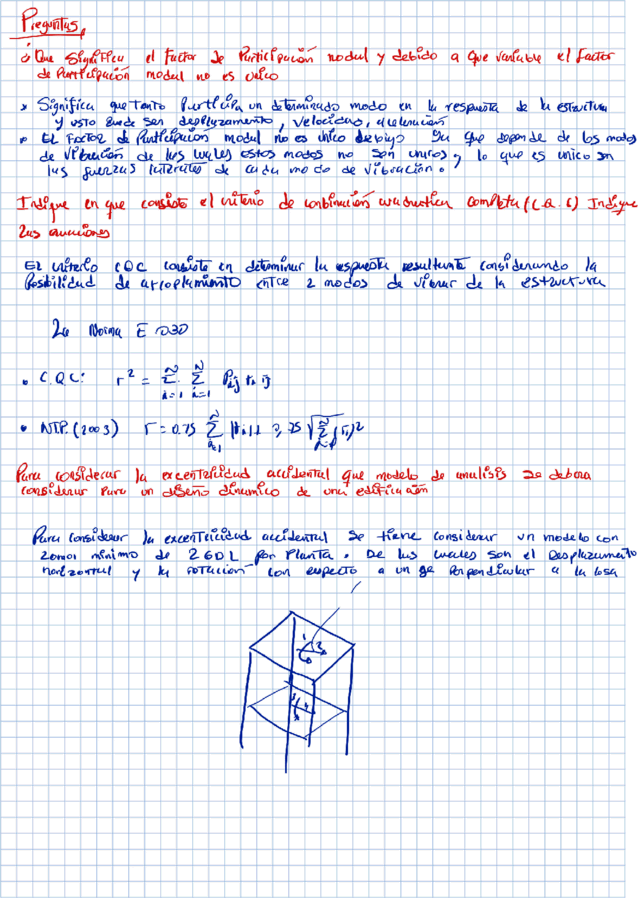 Preguntas
¿Que Significa el factor de Participación modal y debido a que variable el factor
de Participación modal no es unico
Significa que tanto participa un determinado modo en la respuesta de la estructura
y esto puede ser desplazamento, velocidad, aceleración
El Factor de Participación modal no es unico debigo Ya que depende de los modos
de vibración de los cuales estos modos no son unicos, lo que es unico son
las fuerzas laterales de cada modo de vibración.
Indique en que consiste el criterio de conbinación cuadratica completa (C.Q.C) Indique
las ecuaciones
El criterio CQC consiste en determinar la respuesta resultante considerando la
Posibilidad de acoplamiento entre 2 modos de vibrar de la estructura
La Norma E 030
C.Q.C: r² = Σ Σ Pij ri rj
NTP. (2003) r = 0.75 Σ |ri| + 0.25 √Σ(ri)²
Para considerar la excentricidad accidental que modelo de analisis se debera
considerar para un diseño dinamico de una edificación
Para considerar la excentricidad accidental se tiene considerar un modelo con
como minimo de 2 GDL por Planta. De los cuales son el Desplazamento
horizontal y la rotación con respecto a un eje Perpendicular a la losa